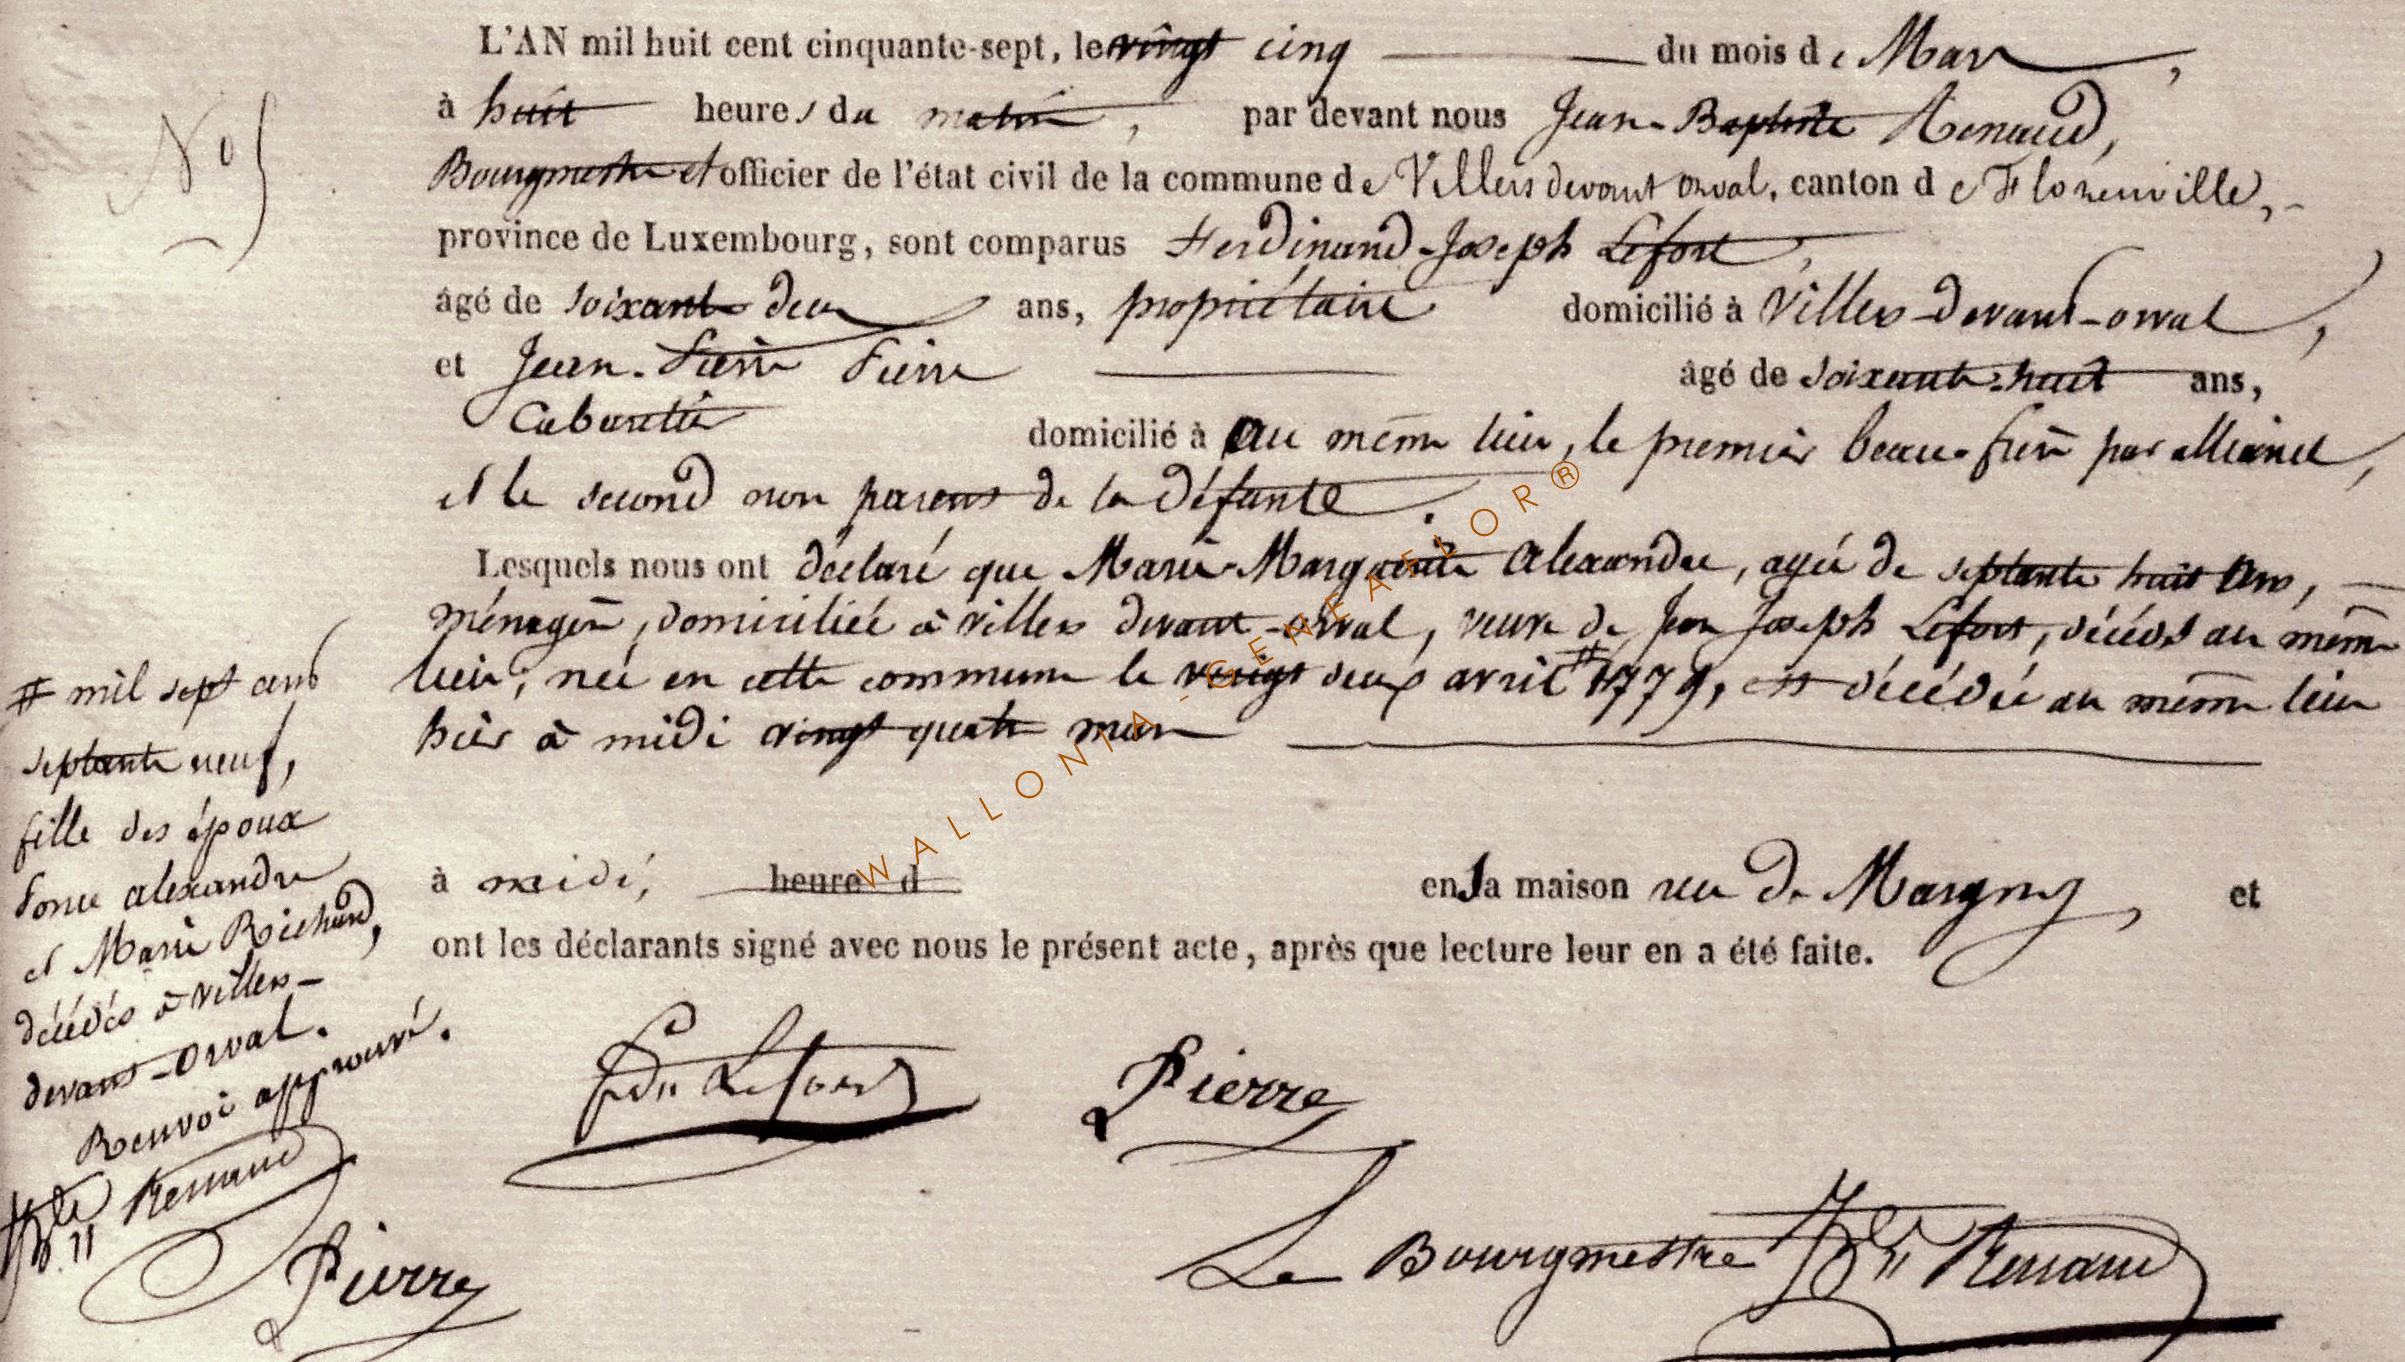 L'AN mil huit cent cinquante-sept, le vingt cinq du mois de Mars,
N° 5
à huit heures du matin, par devant nous Jean-Baptiste Renaud,
Bourgmestre et officier de l'état civil de la commune de Villers devant orval, canton de Florenville,
province de Luxembourg, sont comparus Ferdinand-Joseph Lefort,
âgé de soixante deux ans, propriétaire domicilié à Villers-devant-orval,
et Jean-Pierre Pierre âgé de soixante-huit ans,
Cabaretier domicilié à au même lieu, le premier beau-frère par alliance,
et le second non parens de la défunte.
Lesquels nous ont déclaré que Marie-Marguerite Alexandre, agée de septante huit ans,
ménagère, domiciliée à villers devant-orval, veuve de Jean Joseph Lefort, décédé au même
lieu, née en cette commune le vingt deux avril # 1779, est décédée au même lieu
hier à midi vingt quatre mars
# mil sept cent
septante neuf,
fille des époux
Ponce alexandre
et Marie Richard,
décédés à villers-
devant-Orval.
Renvoi approuvé.
à midi, heure d en sa maison rue de Margny, et
ont les déclarants signé avec nous le présent acte, après que lecture leur en a été faite.
Fdd Lefort Pierre
JBte Renaud
Pierre
Le Bourgmestre JBte Renaud
WALLONIA-GENEAFLOR®